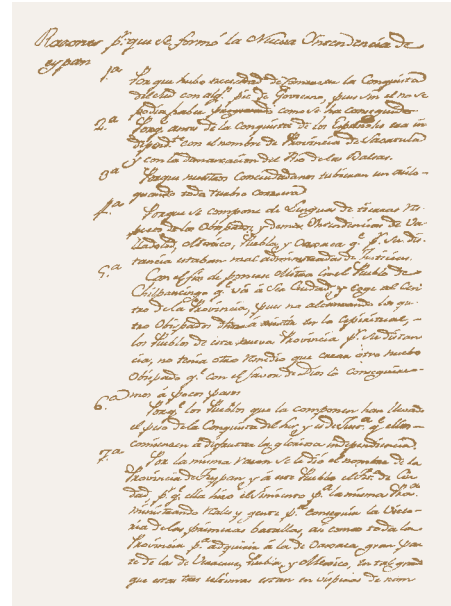 Razones p.r que se formó la Nueva Yntendencia de
Tecpan
1.a Por que hubo necesidad de fomentar la Conquista
del Sud con alg.n pie de Govierno, pues sin él no se
podia haber logrado como se ha conseguido
2.a Porq. antes de la Conquista de los Españoles era in-
depend.te con el nombre de Provincia de Zacatula
y con la demarcacion del Rio de las Balsas.
3.a Porque nuestros Conciudadanos tubieran un asilo
quando todo Tecpan
4.a Porque se compone de Lenguas de tierras res-
pecto de los Obispados, y demas Yntendencias de Va-
lladolid, México, Puebla, y Oaxaca q.e p.r su dis-
tancia estaban mal administradas de Justicia.
5.a Con el fin de poner el otro en el Pueblo de
Chilpancingo q.e va á Sér Ciudad, y coge al Cen-
tro de la Provincia, pues no alcanzando los qua-
tro Obispados á asistir en lo Espiritual,
los Pueblos de esta nueva Provincia p.r su distan-
cia, no tenia otro remedio que crear otro nuebo
Obispado q.e con el favor de Dios lo conseguire-
mos á pocos pasos
6.a Porq.e los Pueblos que la componen han llevado
el peso de la Conquista del Sur, y es de Just.a q.e ellos
comiencen a disfrutar la gloriosa independencia.
7.a Por la misma razon se le dió el nombre de la
Provincia de Tecpan, y á este Pueblo el de Ciu-
dad, p.r q.e ella hizo el Cimiento p.a la misma Pro.a
ministrando Reales y gente p.a conseguir la Victo-
ria de las primeras batallas, asi como toda la
Provincia p.a adquirir á la de Oaxaca gran par-
te de las de Veracruz, Puebla, y México, en tal grado
que estas tres ultimas estan en visperas de nom